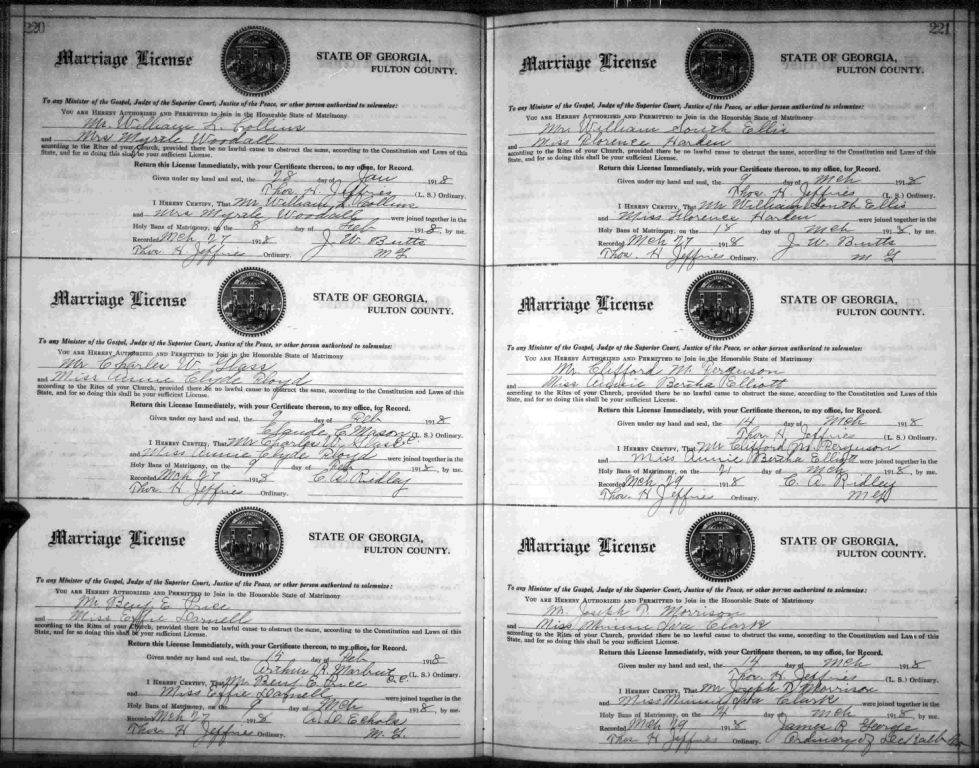 220
Marriage License
STATE OF GEORGIA,
FULTON COUNTY.
To any Minister of the Gospel, Judge of the Superior Court, Justice of the Peace, or other person authorized to solemnize:
YOU ARE HEREBY AUTHORIZED AND PERMITTED to Join in the Honorable State of Matrimony
Mr. William L. Collins
and Mrs Myrtle Woodall
according to the Rites of your Church, provided there be no lawful cause to obstruct the same, according to the Constitution and Laws of this
State, and for so doing this shall be your sufficient License.
Return this License Immediately, with your Certificate thereon, to my office, for Record.
Given under my hand and seal, the 28 day of Jan 1918
Thos. H. Jeffries (L. S.) Ordinary.
I HEREBY CERTIFY, That Mr. William L. Collins
and Mrs Myrtle Woodall were joined together in the
Holy Bans of Matrimony, on the 8 day of Feb 1918, by me.
Recorded Mch 27 1918 J. W. Butts
Thos. H Jeffries Ordinary. M G
Marriage License
STATE OF GEORGIA,
FULTON COUNTY.
To any Minister of the Gospel, Judge of the Superior Court, Justice of the Peace, or other person authorized to solemnize:
YOU ARE HEREBY AUTHORIZED AND PERMITTED to Join in the Honorable State of Matrimony
Mr Charles W. Glass
and Miss Annie Clyde Floyd
according to the Rites of your Church, provided there be no lawful cause to obstruct the same, according to the Constitution and Laws of this
State, and for so doing this shall be your sufficient License.
Return this License Immediately, with your Certificate thereon, to my office, for Record.
Given under my hand and seal, the 9 day of Feb 1918
Claude C Mason (L. S.) Ordinary.
I HEREBY CERTIFY, That Mr Charles W. Glass
and Miss Annie Clyde Floyd were joined together in the
Holy Bans of Matrimony, on the 9 day of Feb 1918, by me.
Recorded Mch 27 1918 C. A. Ridley
Thos H Jeffries Ordinary.
Marriage License
STATE OF GEORGIA,
FULTON COUNTY.
To any Minister of the Gospel, Judge of the Superior Court, Justice of the Peace, or other person authorized to solemnize:
YOU ARE HEREBY AUTHORIZED AND PERMITTED to Join in the Honorable State of Matrimony
Mr Benj E. Price
and Miss Effie Darnell
according to the Rites of your Church, provided there be no lawful cause to obstruct the same, according to the Constitution and Laws of this
State, and for so doing this shall be your sufficient License.
Return this License Immediately, with your Certificate thereon, to my office, for Record.
Given under my hand and seal, the 15 day of Feb 1918
Arthur R. Marbut D.C. (L. S.) Ordinary.
I HEREBY CERTIFY, That Mr. Benj. E. Price
and Miss Effie Darnell were joined together in the
Holy Bans of Matrimony, on the 9 day of Mch 1918, by me.
Recorded Mch 27 1918 A. D. Echols
Thos H Jeffries Ordinary. M. G.
221
Marriage License
STATE OF GEORGIA,
FULTON COUNTY.
To any Minister of the Gospel, Judge of the Superior Court, Justice of the Peace, or other person authorized to solemnize:
YOU ARE HEREBY AUTHORIZED AND PERMITTED to Join in the Honorable State of Matrimony
Mr William South Ellis
and Miss Florence Harden
according to the Rites of your Church, provided there be no lawful cause to obstruct the same, according to the Constitution and Laws of this
State, and for so doing this shall be your sufficient License.
Return this License Immediately, with your Certificate thereon, to my office, for Record.
Given under my hand and seal, the 9 day of Mch 1918
Thos. H Jeffries (L. S.) Ordinary.
I HEREBY CERTIFY, That Mr William South Ellis
and Miss Florence Harden were joined together in the
Holy Bans of Matrimony, on the 18 day of Mch 1918, by me.
Recorded Mch 27 1918 J. W. Butts
Thos. H Jeffries Ordinary. M G
Marriage License
STATE OF GEORGIA,
FULTON COUNTY.
To any Minister of the Gospel, Judge of the Superior Court, Justice of the Peace, or other person authorized to solemnize:
YOU ARE HEREBY AUTHORIZED AND PERMITTED to Join in the Honorable State of Matrimony
Mr Clifford M. Ferguson
and Miss Annie Bertha Elliott
according to the Rites of your Church, provided there be no lawful cause to obstruct the same, according to the Constitution and Laws of this
State, and for so doing this shall be your sufficient License.
Return this License Immediately, with your Certificate thereon, to my office, for Record.
Given under my hand and seal, the 14 day of Mch 1918
Thos. H Jeffries (L. S.) Ordinary.
I HEREBY CERTIFY, That Mr Clifford M Ferguson
and Miss Annie Bertha Elliott were joined together in the
Holy Bans of Matrimony, on the 21 day of Mch 1918, by me.
Recorded Mch 29 1918 C. A. Ridley
Thos. H Jeffries Ordinary. M G
Marriage License
STATE OF GEORGIA,
FULTON COUNTY.
To any Minister of the Gospel, Judge of the Superior Court, Justice of the Peace, or other person authorized to solemnize:
YOU ARE HEREBY AUTHORIZED AND PERMITTED to Join in the Honorable State of Matrimony
Mr. Joseph D. Morrison
and Miss Minnie Iva Clark
according to the Rites of your Church, provided there be no lawful cause to obstruct the same, according to the Constitution and Laws of this
State, and for so doing this shall be your sufficient License.
Return this License Immediately, with your Certificate thereon, to my office, for Record.
Given under my hand and seal, the 14 day of Mch 1918
Thos. H Jeffries (L. S.) Ordinary.
I HEREBY CERTIFY, That Mr Joseph D Morrison
and Miss Minnie Iva Clark were joined together in the
Holy Bans of Matrimony, on the 14 day of Mch 1918, by me.
Recorded Mch 29 1918 James R George
Thos H Jeffries Ordinary. Ordinary of DeKalb Co